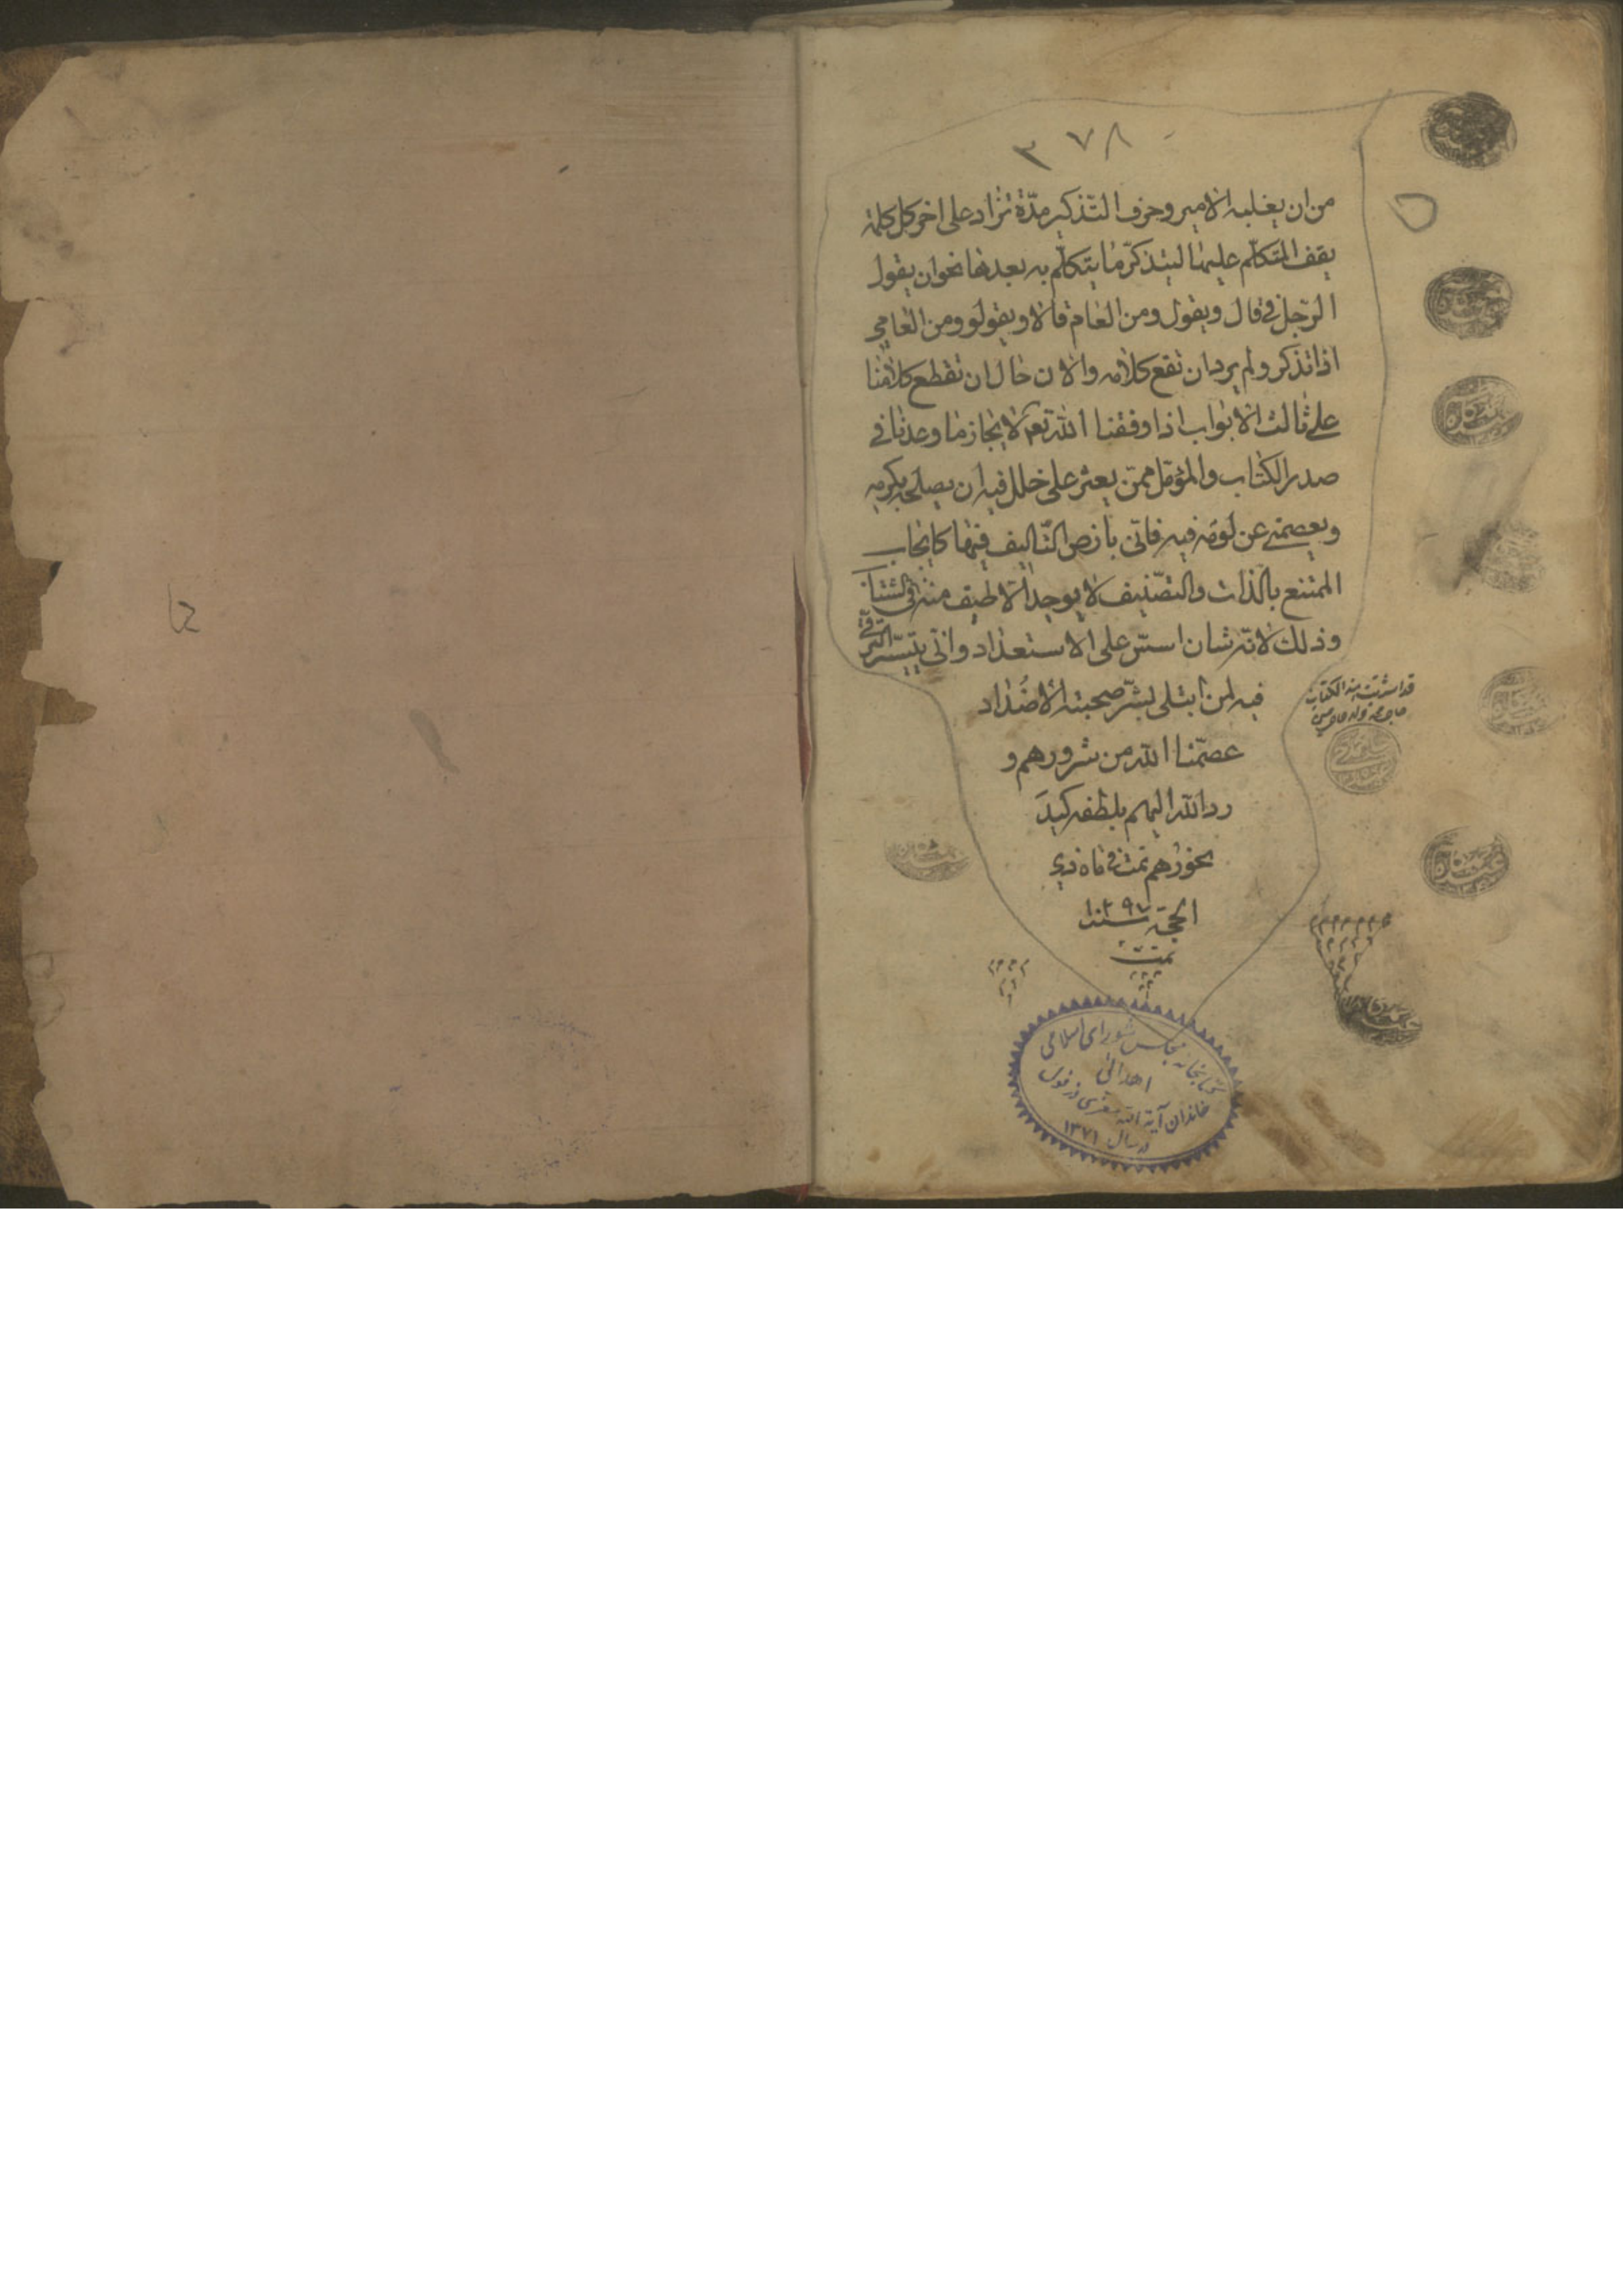 ٣٧٨
من ان يغلبه الامير وحرف التذكير مدّة تزاد على اخر كل كلمة
يقف المتكلّم عليها ليتذكّر ما يتكلّم به بعدها نحو ان يقول
الرّجل في قال ويقول ومن العام قالا ويقولو ومن العامي
اذا تذكر ولم يرد ان تقع كلامه والان حال ان نقطع كلامنا
على ثالث الابواب اذا وفقنا الله تعم لانجاز ما وعدنا في
صدر الكتاب والمؤمّل ممّن يعثر على خلل فيه ان يصلحه بكرمه
ويعصمني عن لومه فيه فانّي بارض التّاليف فيها كايجاب
الممتنع بالذات والتصنيف لا يوجد الا طيف منه في الشتا
وذلك لانّه شان اسّس على الاستعداد وانّى يتيسّر الترقّي
فيه لمن ابتلى بشرّ صحبته الاضداد
عصمّنا الله من شرورهم و
رد الله اليهم بلطفه كيد
نحورهم تمت في ماه ذي
الحجة سنه ١٢٩٧
تمت
قد اشتريت هذا الكتاب
كتابخانه مجلس شورای اسلامی
اهدائی
خاندان آیة الله معزی دزفولی
در سال ١٣٧١